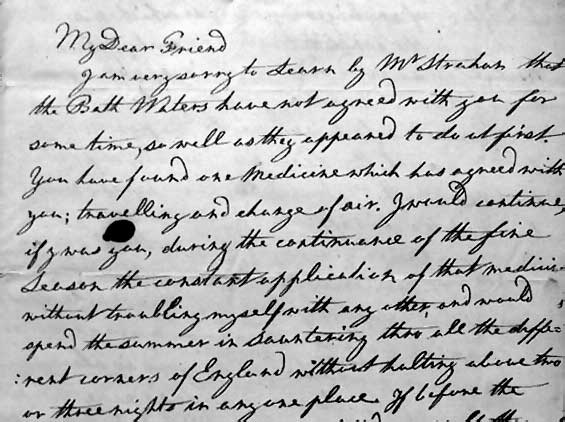 My Dear Friend
I am very sorry to learn by Mr Strahan that
the Bath Waters have not agreed with you for
some time, so well as they appeared to do at first.
You have found one Medicine which has agreed with
you; travelling and change of air. I would continue,
if I was you, during the continuance of the fine
Season the constant application of that medicin-
without troubling myself with any other, and would
spend the summer in Sauntering thro all the diffe-
:rent corners of England without halting above two
or three nights in any one place. If before the